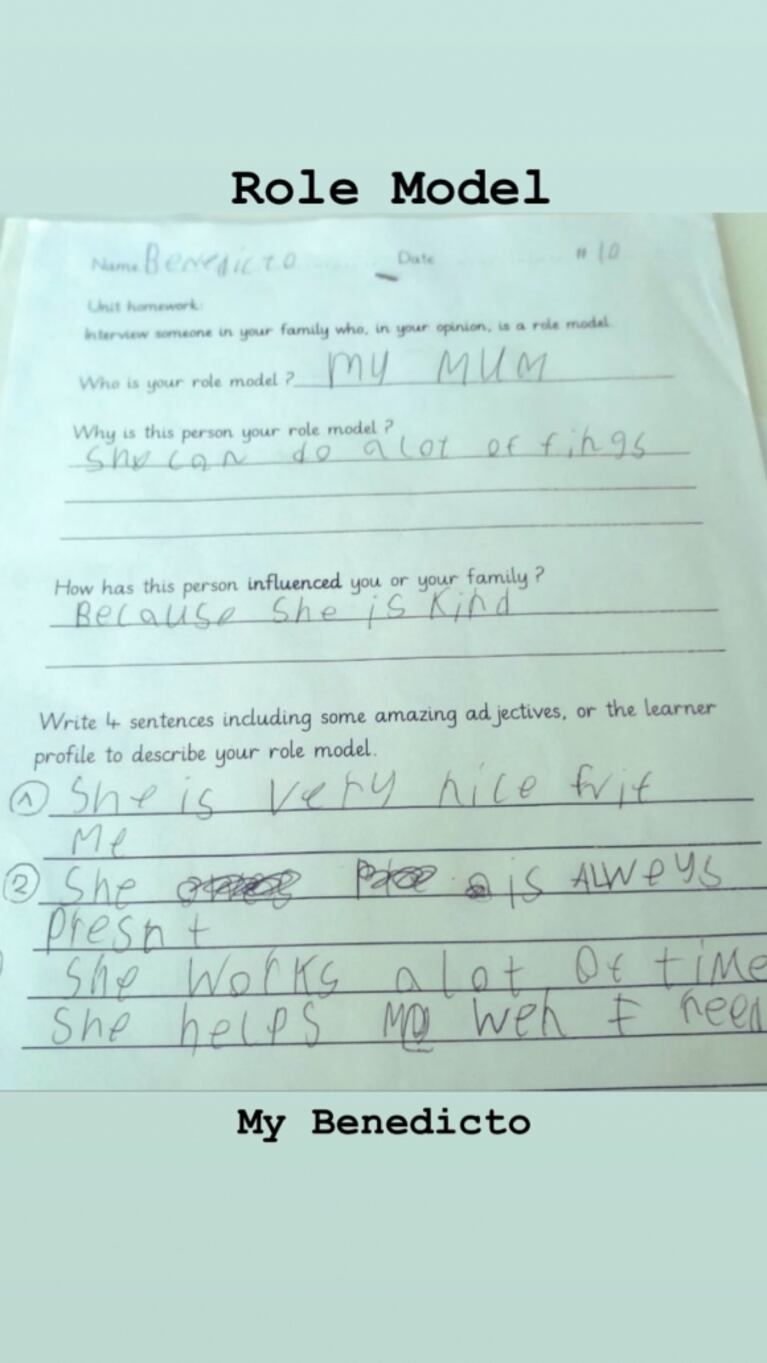 Role Model
Name Benedicto Date # 10
Unit homework:
Interview someone in your family who, in your opinion, is a role model.
Who is your role model ? my MUM
Why is this person your role model ?
She can do alot of fings
How has this person influenced you or your family ?
Because she is kind
Write 4 sentences including some amazing adjectives, or the learner
profile to describe your role model.
1 She is very nice
Me
2 She is ALWeys
presnt
She works alot of time
She helps weh I need
My Benedicto